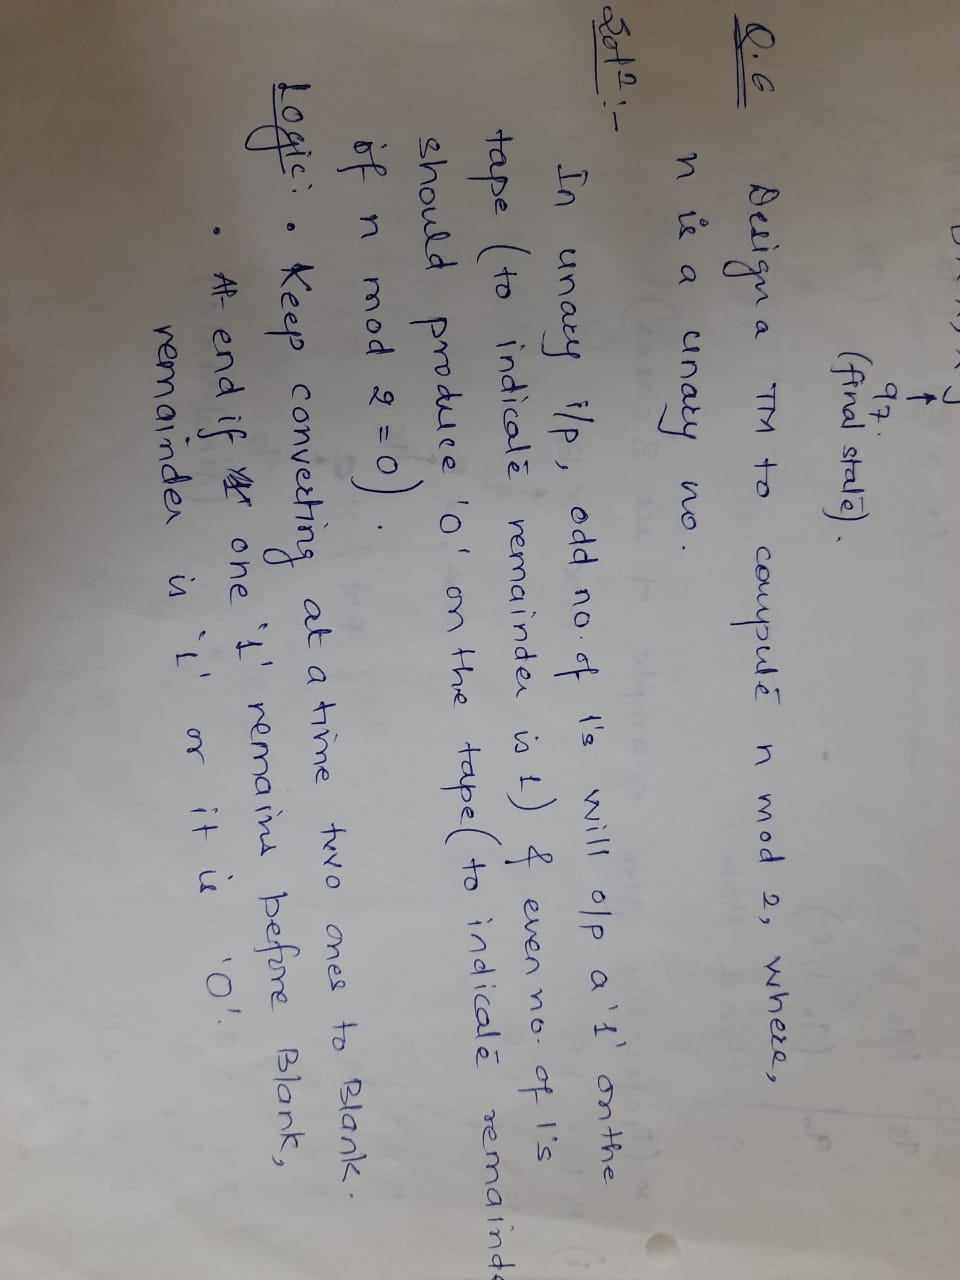 q7.
(final state).
Q.6 Design a TM to compute n mod 2, where,
n is a unary no.
Solⁿ:-
In unary i/p, odd no. of 1's will o/p a '1' on the
tape (to indicate remainder is 1) & even no. of 1's
should produce '0' on the tape (to indicate remainde
if n mod 2 = 0).
Logic: • Keep converting at a time two ones to Blank.
• At end if one '1' remains before Blank,
remainder is '1' or it is '0'.